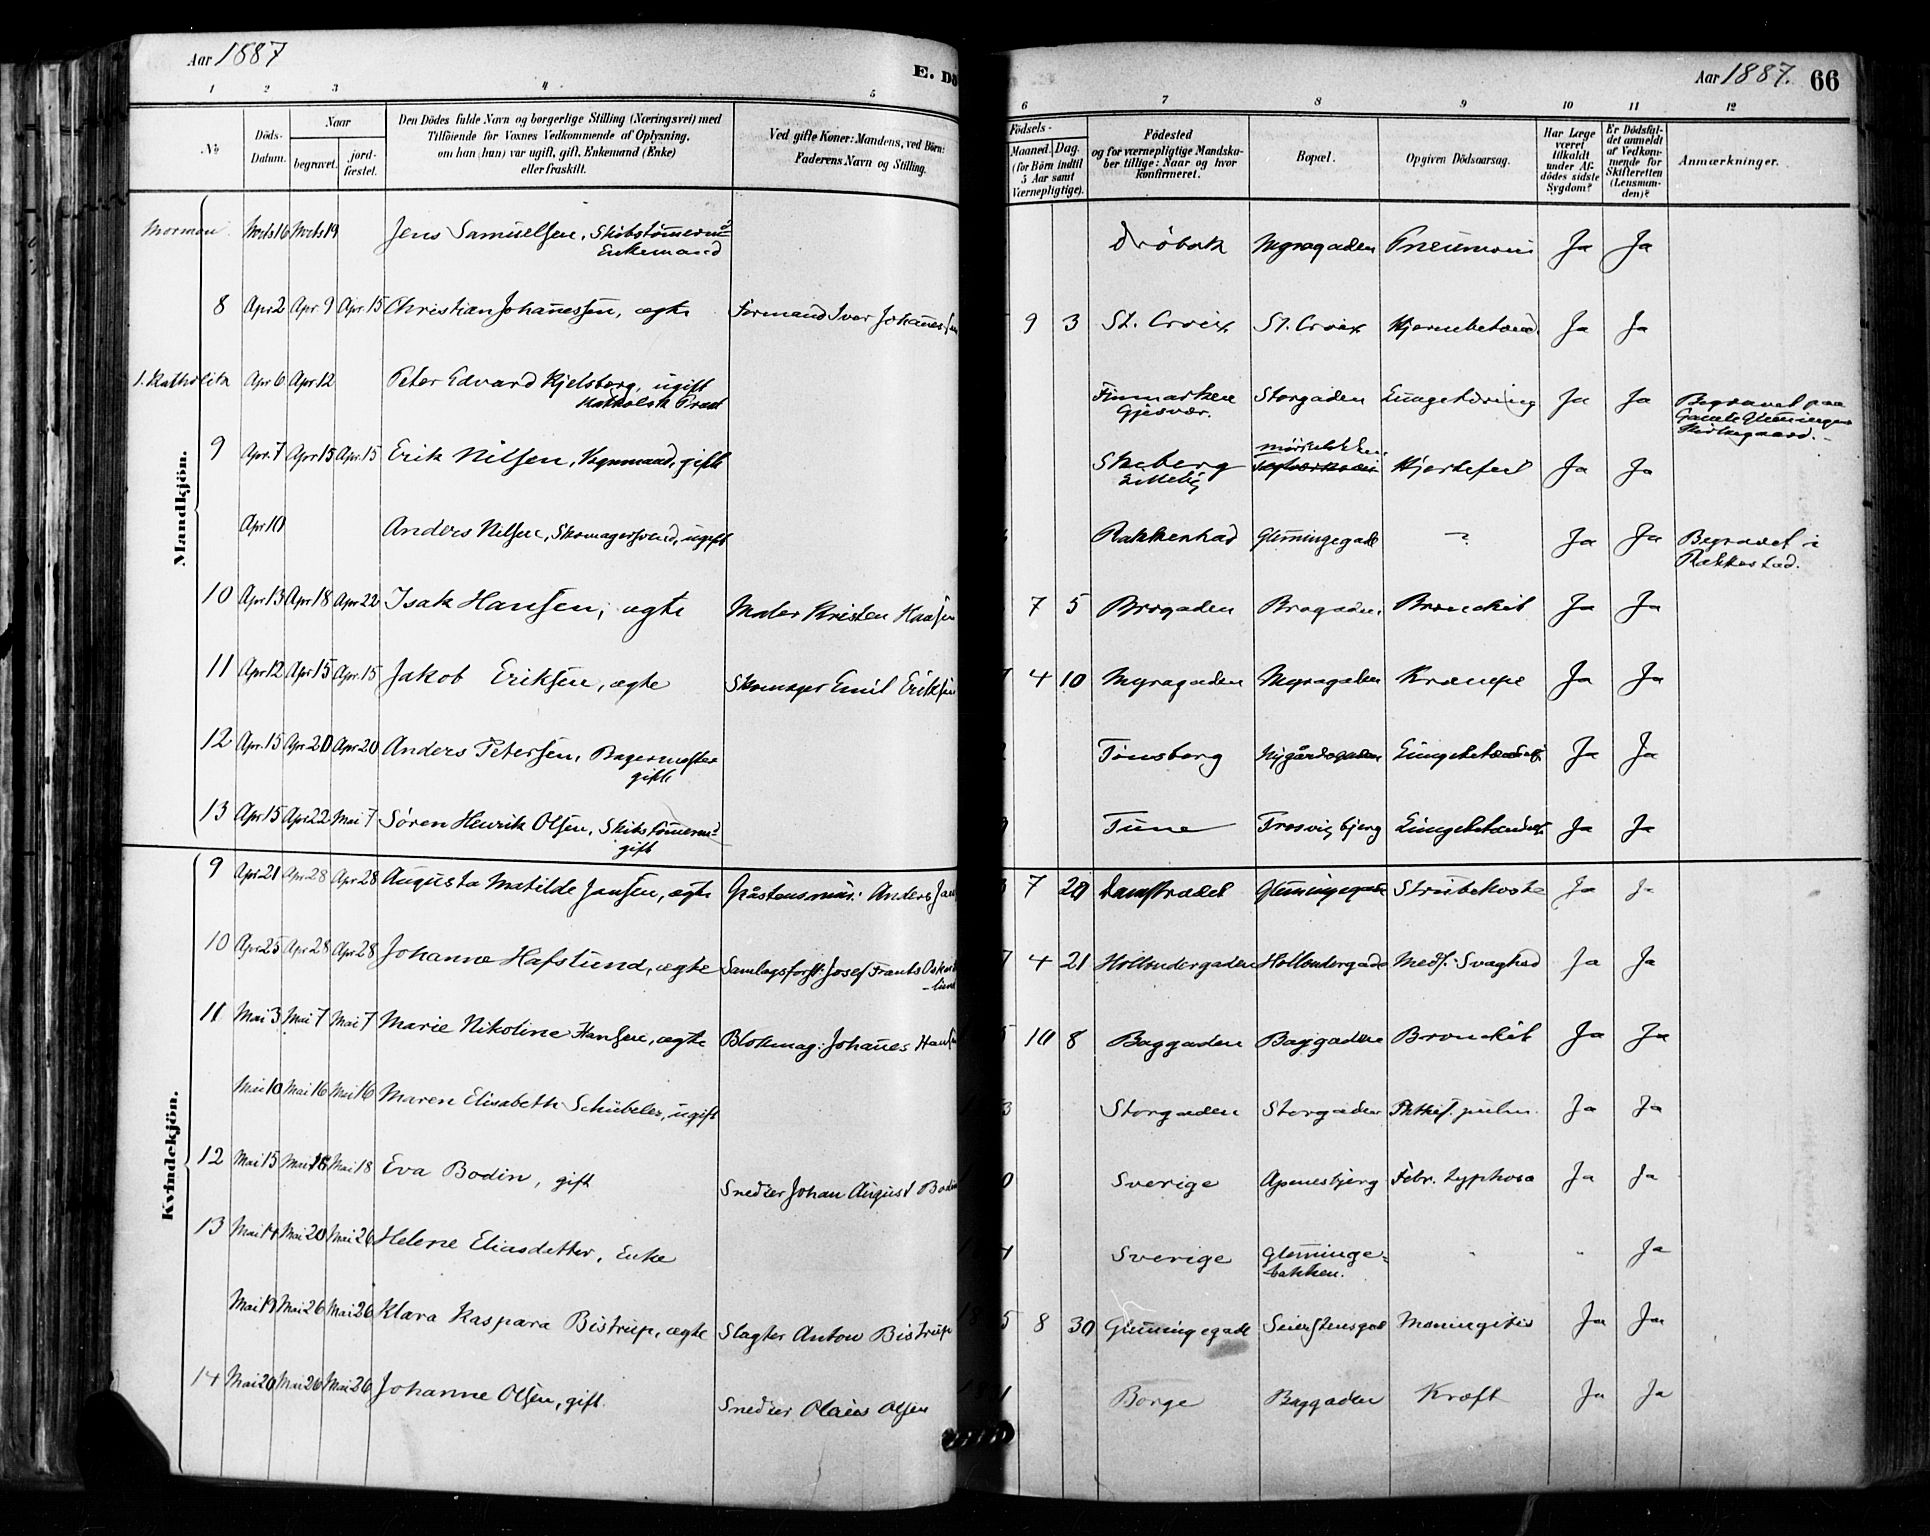 Aar 1887
E. Dö
Aar 1887. 66
1 2 3 4 5
6 7 8 9 10 11 12
No
Döds-Datum.
Naar
begravet.
jord-fæstet.
Den Dödes fulde Navn og borgerlige Stilling (Næringsvei) med
Tilföiende for Voxnes Vedkommende af Oplysning,
om han (hun) var ugift, gift, Enkemand (Enke)
eller fraskilt.
Ved gifte Koner: Mandens, ved Börn:
Faderens Navn og Stilling.
Födsels-
Maaned. Dag.
(for Börn indtil
5 Aar samt
Værnepligtige).
Födested
og for værnepligtige Mandska-
ber tillige: Naar og hvor
konfirmeret.
Bopæl.
Opgiven Dödsaarsag.
Har Læge
været
tilkaldt
under Af-
dödes sidste
Sygdom?
Er Dödsfal-
det anmeldt
af Vedkom-
mende for
Skifteretten
(Lensman-
den)?
Anmærkninger.
Mandkjön.
Mormon. Marts 16 Marts 19 Jens Samuelsen, Enkemand Drøbak Myragaden Pneumoni Ja Ja
8 Apr 2 Apr 9 Apr. 15 Christian Johanessen, ægte Formand Iver Johanessen 9 3 St. Croix St. Croix Hjernebetænd. Ja Ja
1. Katholik Apr 6 Apr 12 Peter Edvard Kjelsberg, ugift
Katholsk Præst Finmarken
Gjesvær. Storgaden Lungetæring Ja Ja Begravet paa
Gamle Glemminge
Kirkegaard.
9 Apr. 7 Apr 15 Apr. 15 Erik Nilsen, Vognmand, gift Skeberg Hjertefeil Ja Ja
Apr 10 Anders Nilsen, Skomagersvend, ugift Rakkestad Glemmingegade Ja Ja Begravet i
Rakkestad.
10 Apr 13 Apr 18 Apr 22 Isak Hansen, ægte Maler Kristen Hansen 7 5 Brogaden Brogaden. Bronchit Ja Ja
11 Apr 12 Apr 15 Apr. 15 Jakob Eriksen, ægte Skomager Emil Eriksen 4 10 Myragaden Myragaden Krampe Ja Ja
12 Apr. 15 Apr 20 Apr 20 Anders Petersen, Bagermester
gift Tønsberg Nygårdsgaden Lungebetændelse Ja Ja
13 Apr 15 Apr 22 Mai 7 Søren Henrik Olsen, Skibstømmerm.
gift Tune Trosvigbjerg Lungebetændels. Ja Ja
Kvindekjön.
9 Apr 21 Apr 28 Apr 28 Augusta Matilde Jansen, ægte Gråstensmur. Anders Jans 7 20 Damstrædet Glemmingegade Strubehoste Ja Ja
10 Apr 25 Apr 28 Apr 28 Johanne Hafslund, ægte Samlagsforst. Josef Frants Oskar 4 21 Hollendergaden Hollendergade Medf. Svaghed Ja Ja
11 Mai 3 Mai 7 Mai 7 Marie Nikoline Hansen, ægte Blokmag: Johanes Hans 10 8 Baggaden Baggaden Bronchit Ja Ja
Mai 10 Mai 16 Mai 16 Maren Elisabeth Schübeler, ugift Storgaden Storgaden Phthis. pulm. Ja Ja
12 Mai 15 Mai 18 Mai 18 Eva Bodin, gift Snedker Johan August Bodin Sverige Apenesbjerg Febr. typhosa Ja Ja
13 Mai 14 Mai 20 Mai 26 Helene Eliasdatter, Enke Sverige Glemminge-
bakken. Ja
Mai 19 Mai 26 Mai 26 Klara Kaspara Bistrup, ægte Slagter Anton Bistrup 5 8 30 Glemmingegade Meningitis Ja Ja
14 Mai 20 Mai 26 Mai 26 Johanne Olsen, gift. Snedker Olaus Olsen Borge Baggaden Kræft Ja Ja